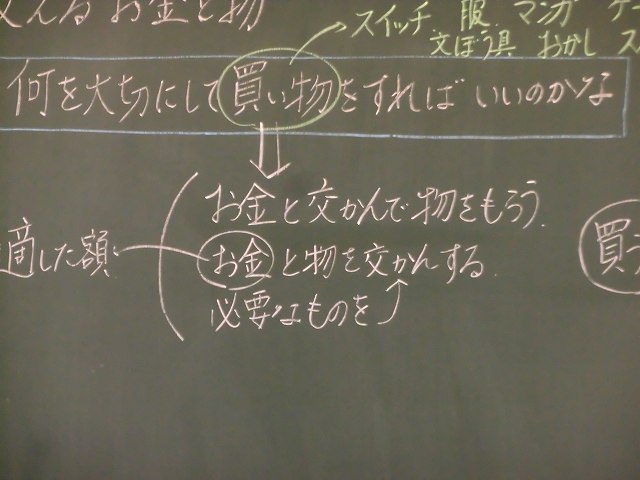 えるお金と物
スイッチ 服 マンガ
文ぼう具 おかし
何を大切にして買い物をすればいいのかな
お金と交かんで物をもらう。
適した額
お金と物を交かんする。
必要なものを
買